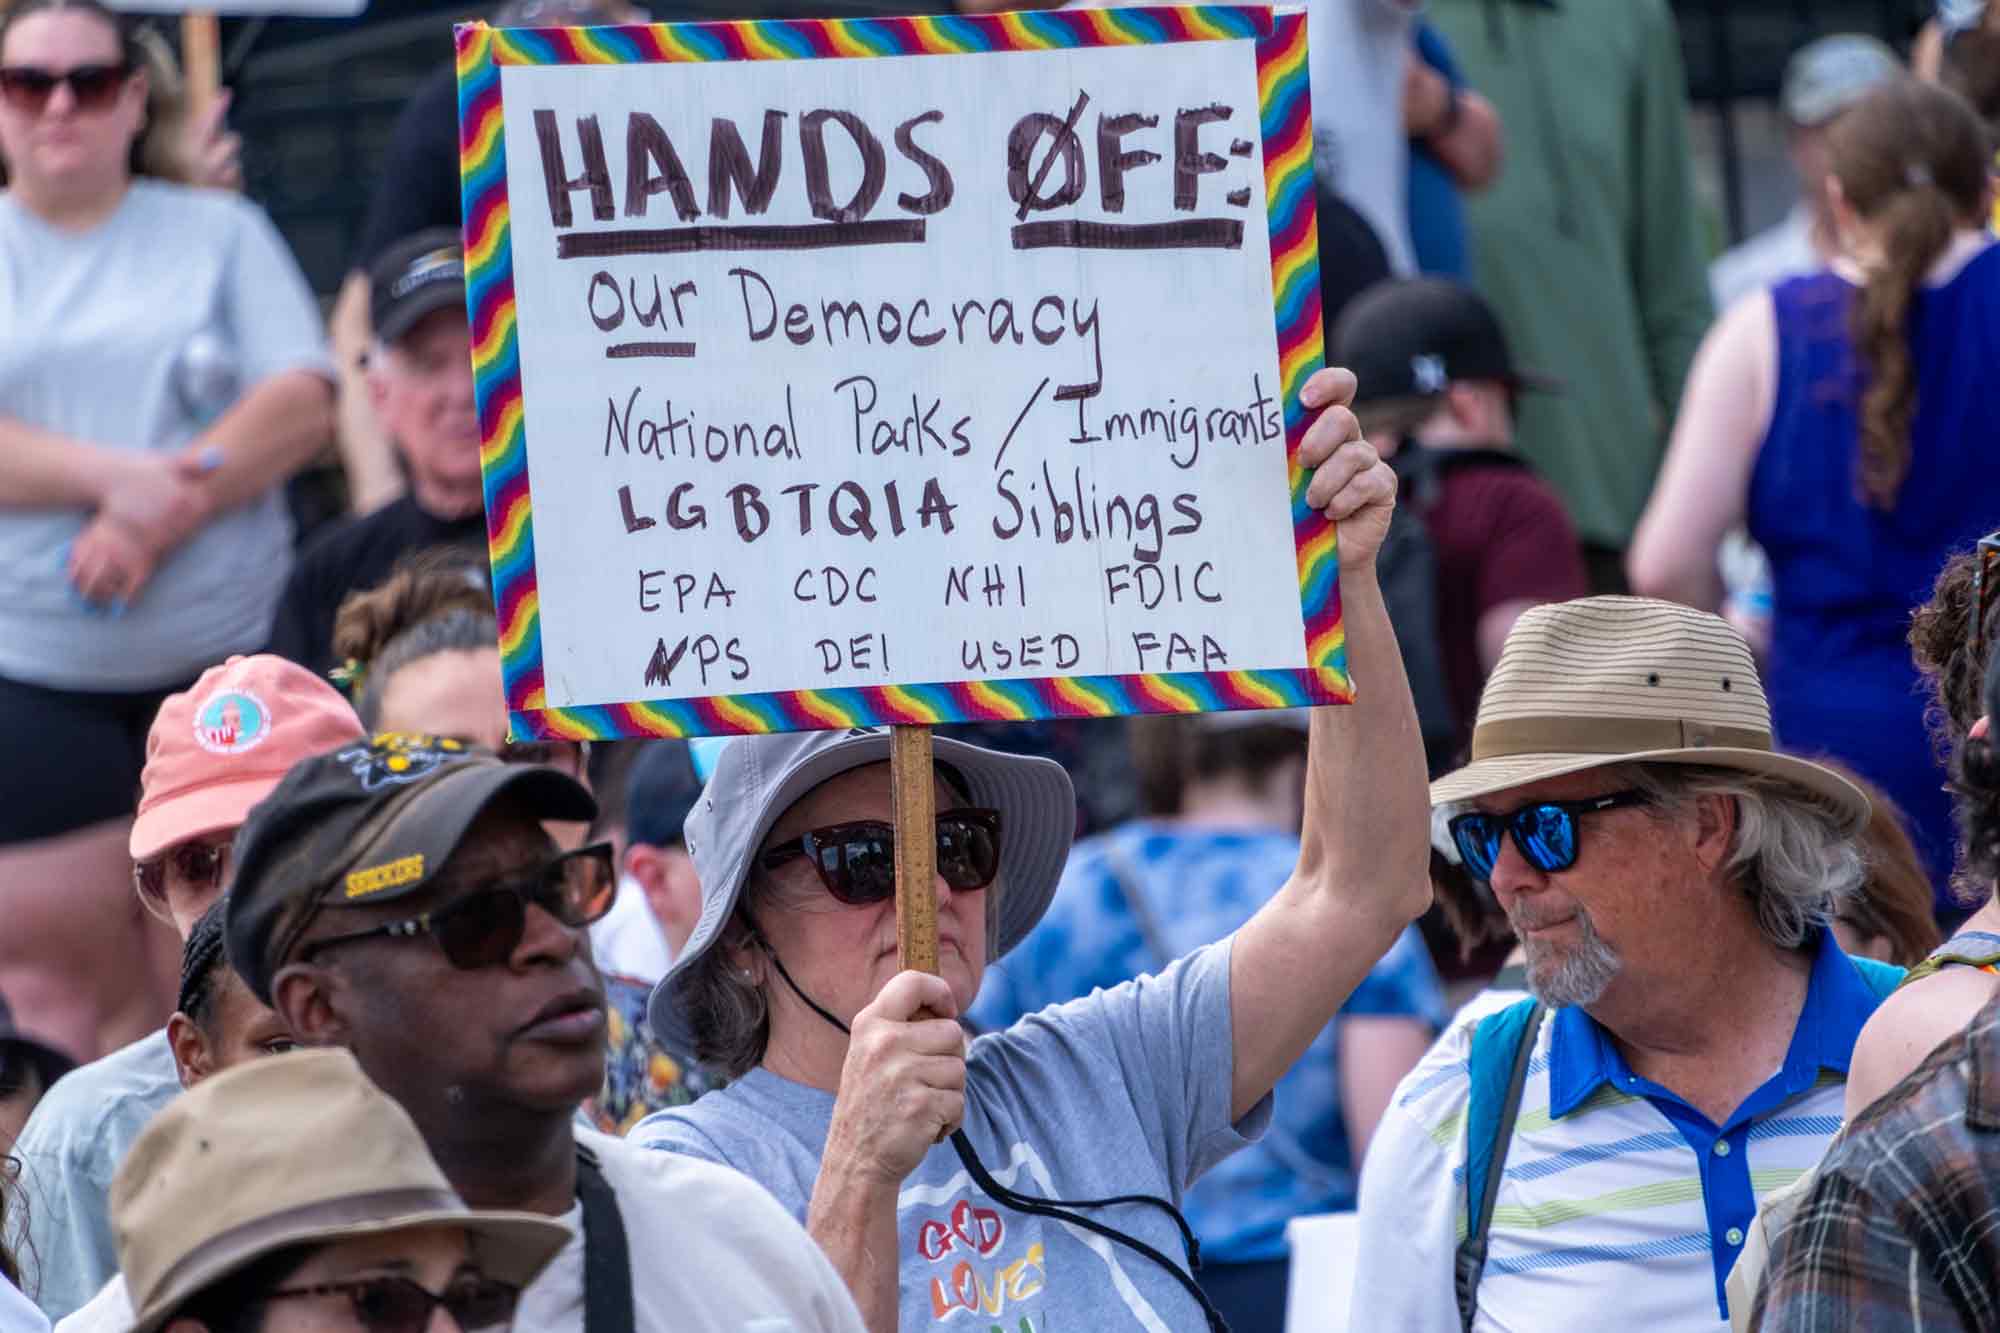 HANDS ØFF:
Our Democracy
National Parks / Immigrants
LGBTQIA Siblings
EPA CDC NHI FDIC
NPS DEI USED FAA
SHOCKERS
GOD
LOVES